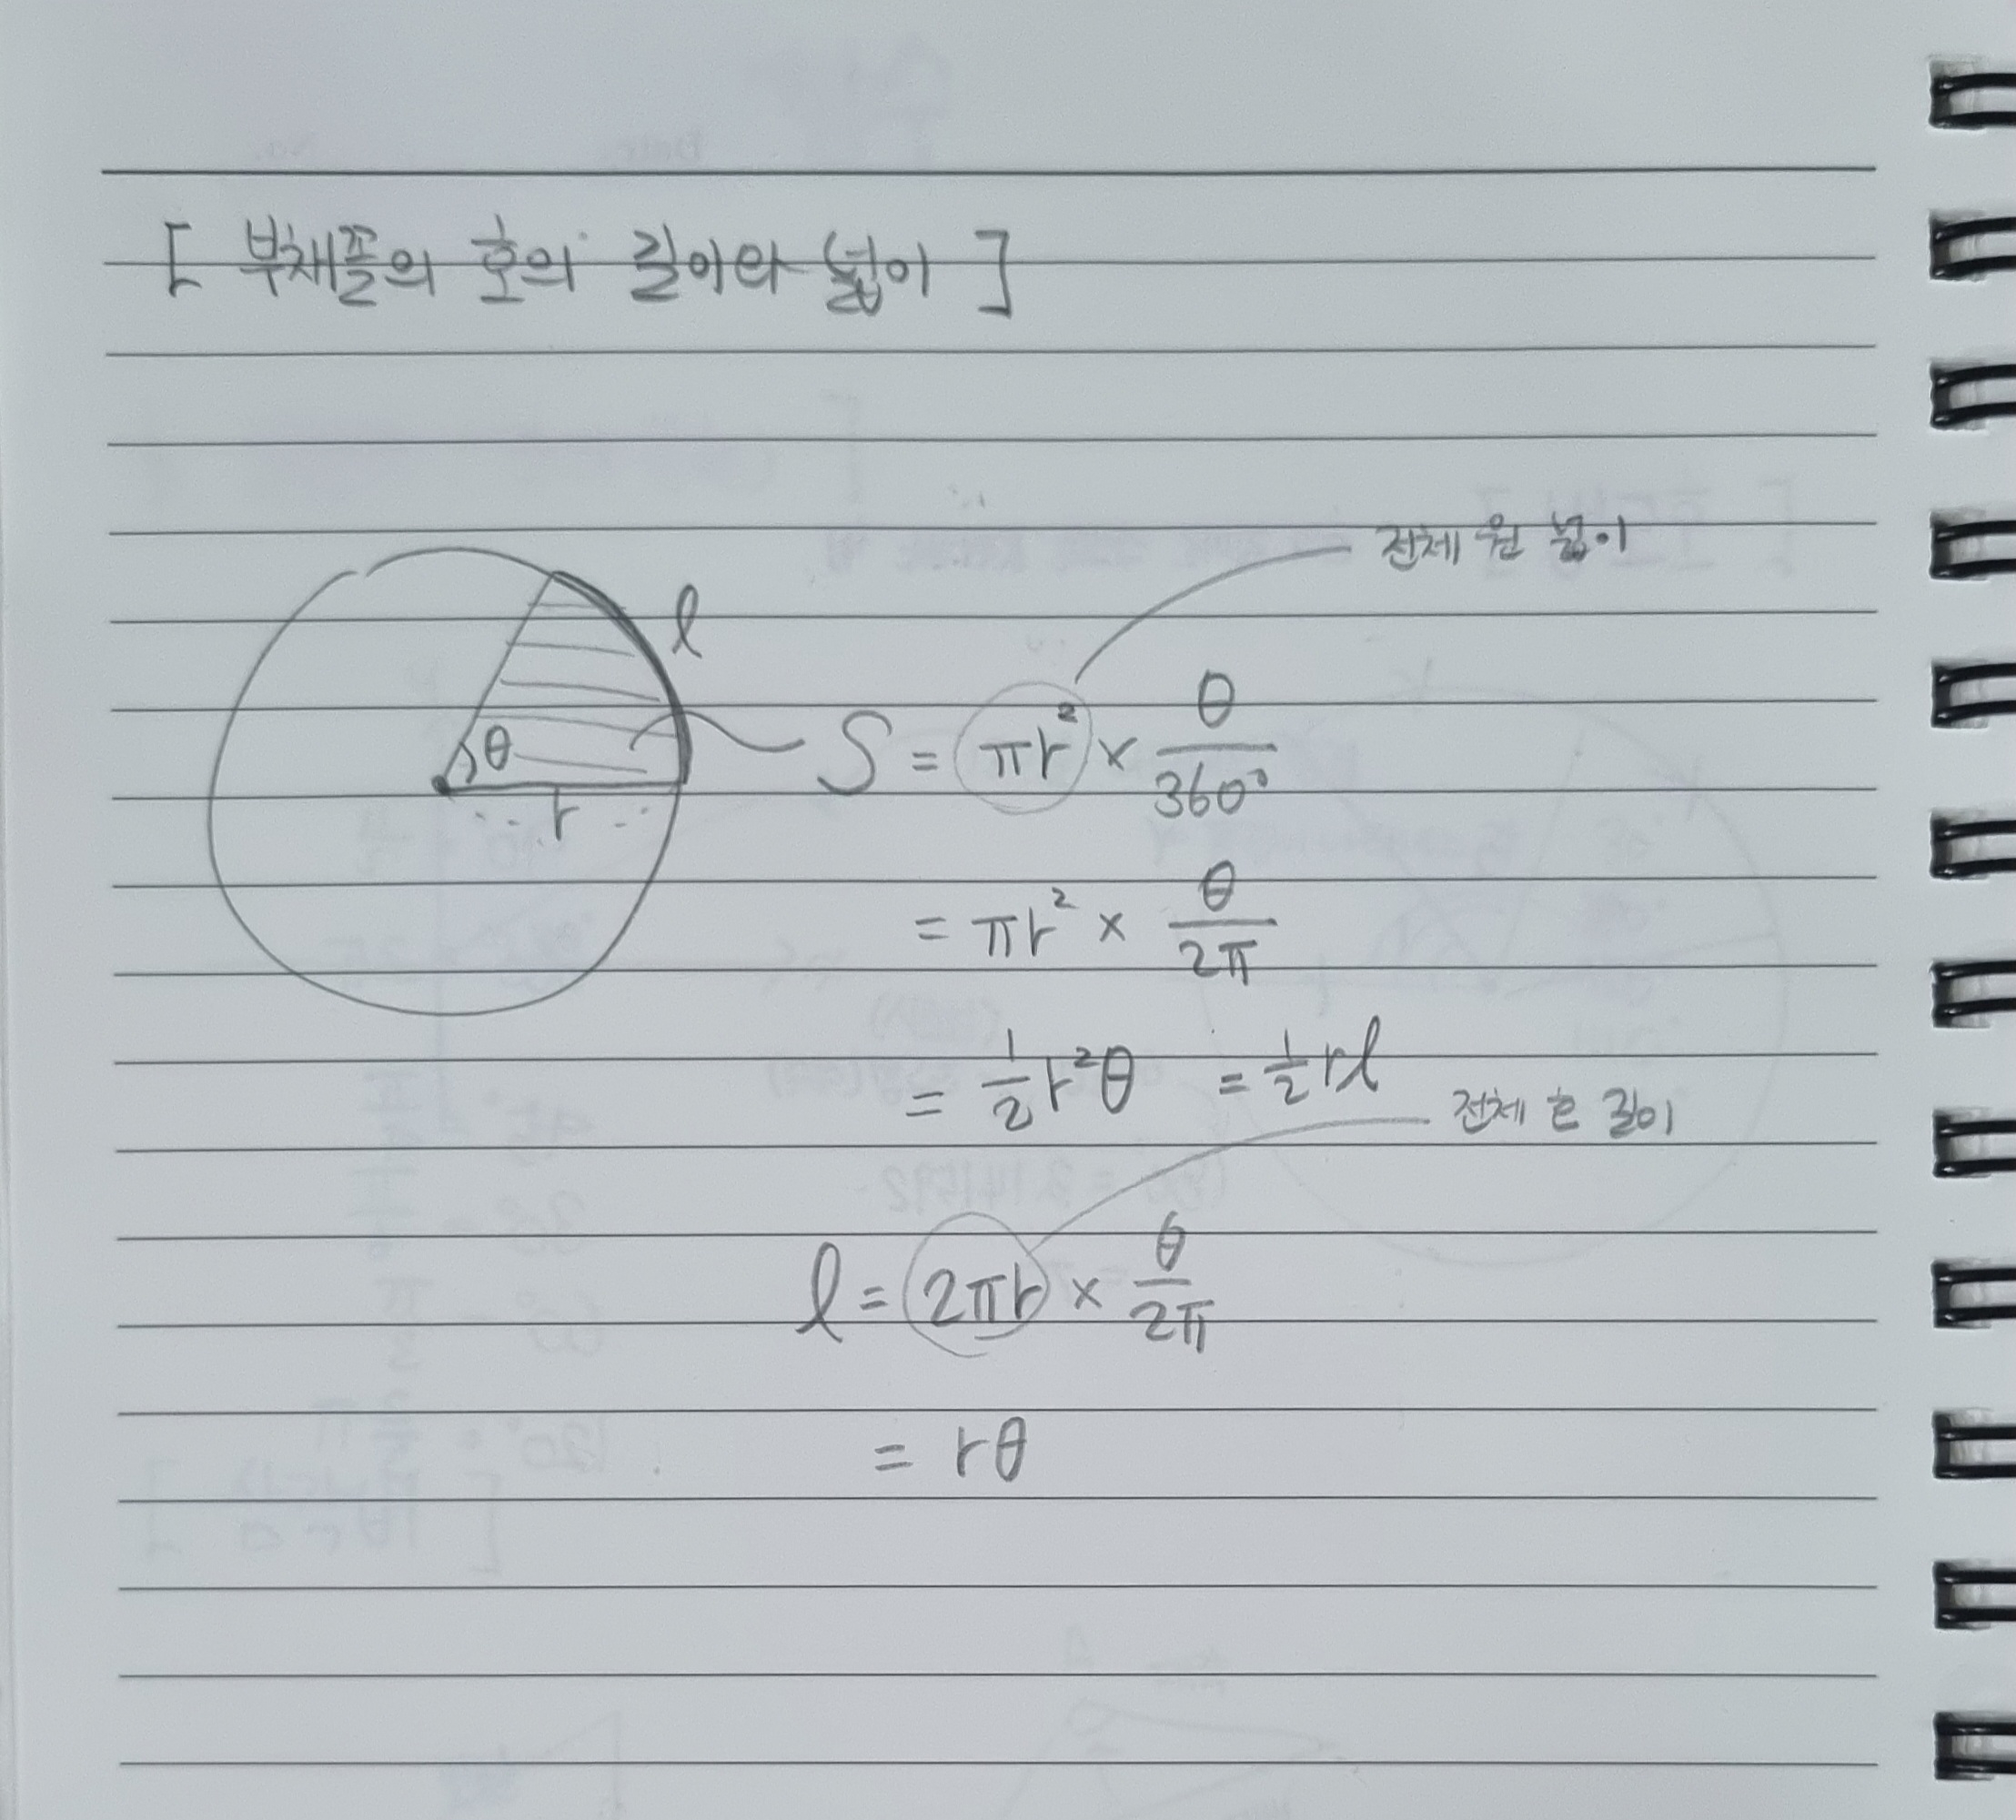 [ 부채꼴의 호의 길이와 넓이 ]
전체 원 넓이
l
θ
r
S = πr² × θ/360°
= πr² × θ/2π
= 1/2 r²θ = 1/2 rl
전체 호 길이
l = 2πr × θ/2π
= rθ